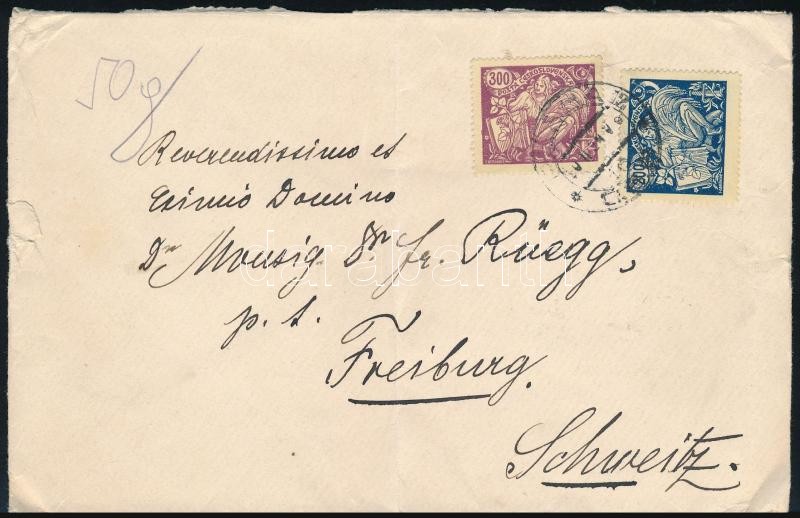 50 g
300
POŠTA ČESKOSLOVENSKÁ
300
Reverendissimo et
Eximio Domino
Dr Monsig Dr. fr. Rüegg,
p. t.
Freiburg.
Schweitz.
darabanth